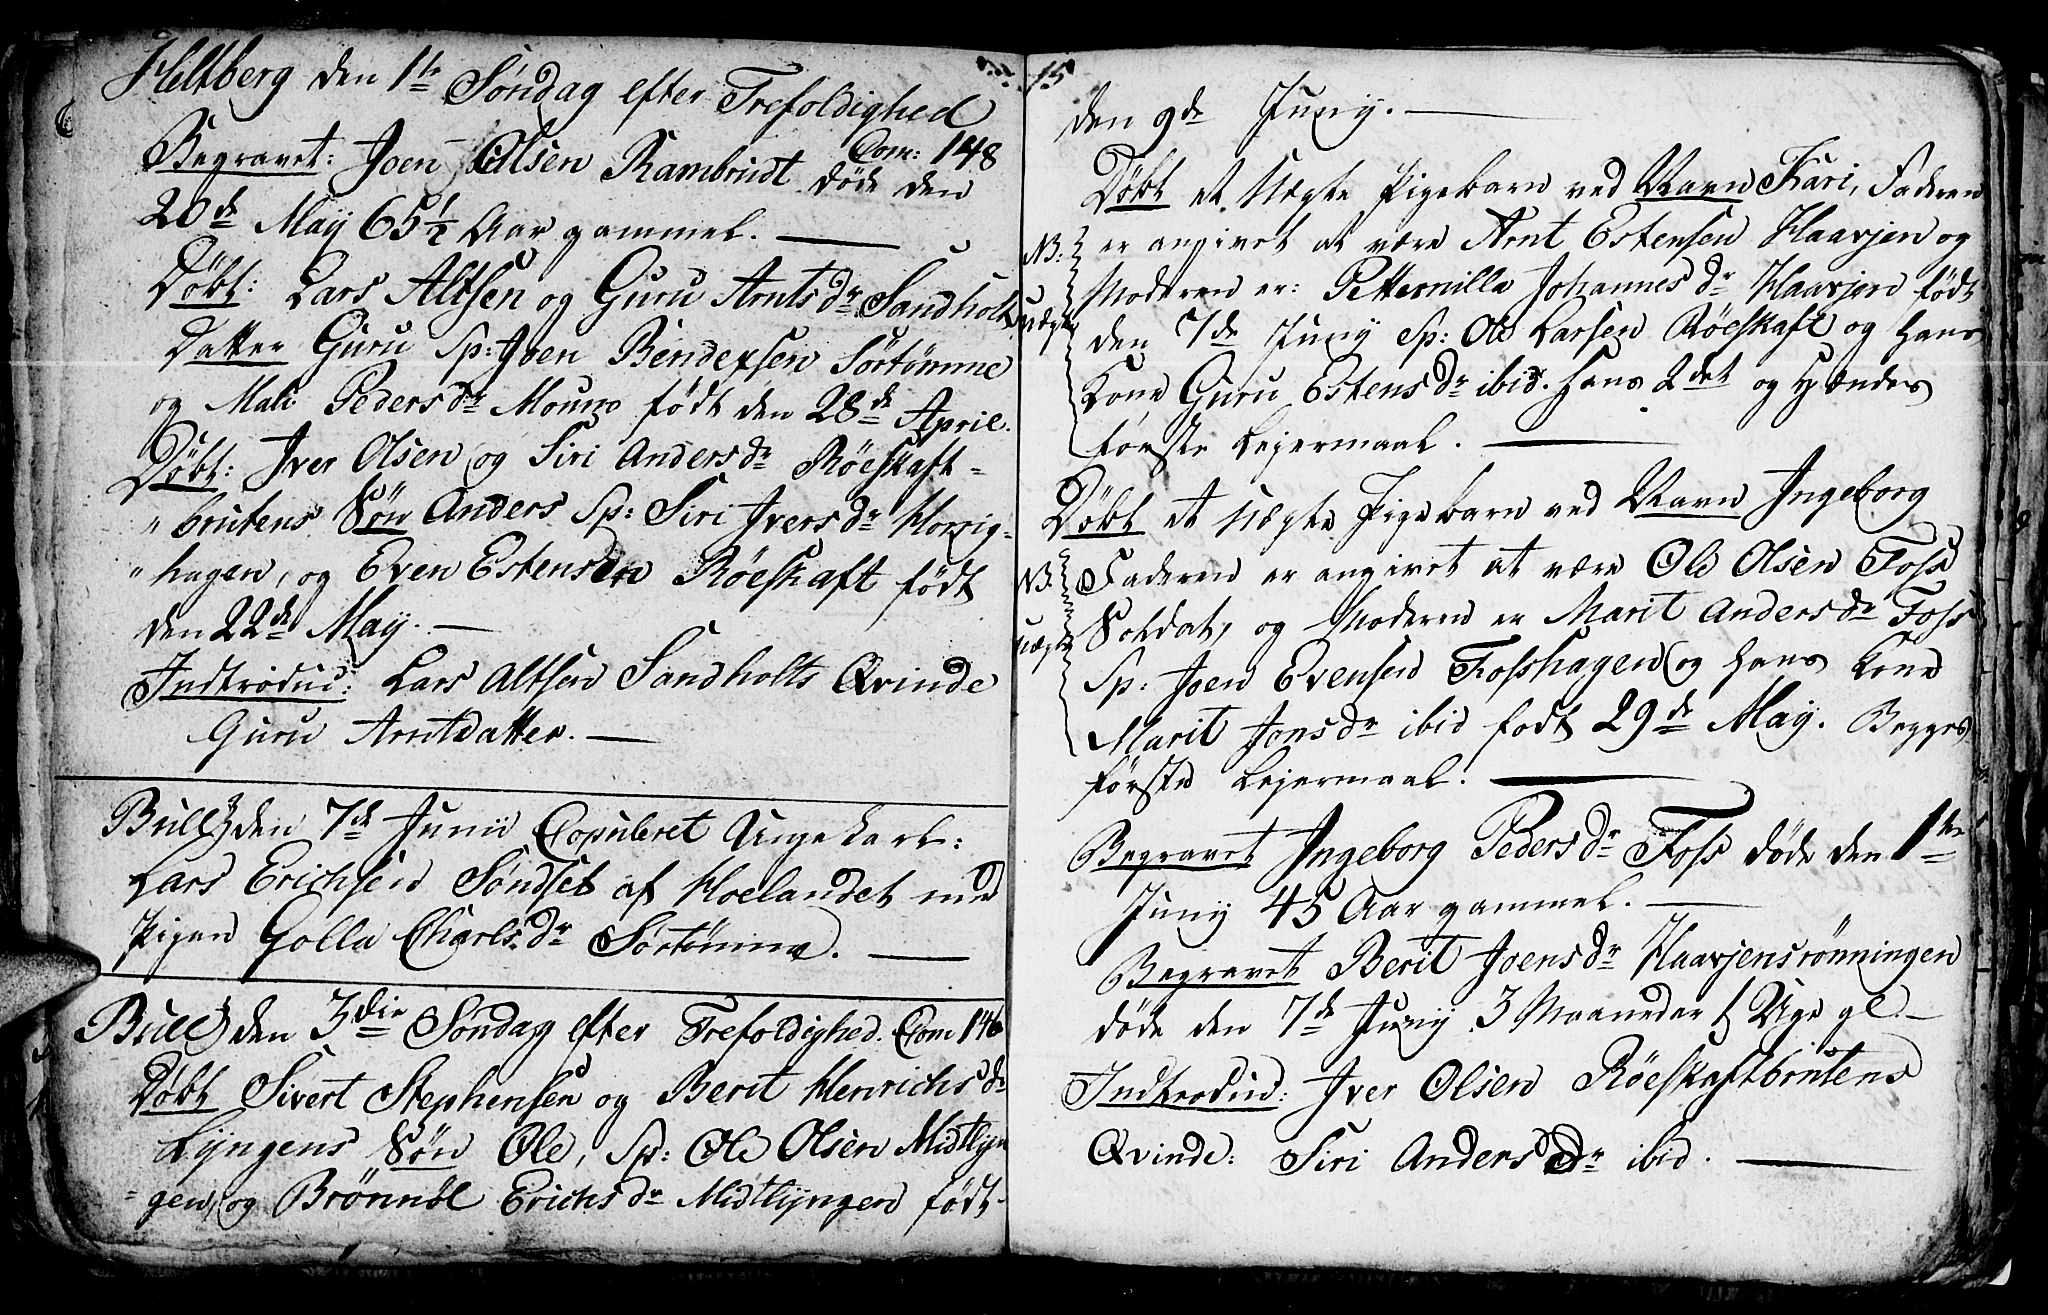 Heltberg den 1te Søndag efter Trefoldighed
Com: 148
Begravet: Joen Olsen Rambrudt døde den
20de Maij 65 1/2 Aar gammel. —
Døbt: Lars Altsen og Guru Arntsdr Sandholts
Datter Guru Sp: Joen Bendexsen Sørtømme
og Mali Pedersdr Mouno født den 28de April.
Døbt: Iver Olsen og Siri Andersdr Røeskaft-
brutens Søn Anders Sp: Siri Iversdr Horrig-
hagen, og Even Estensen Røeskaft født
den 22de Maij. —
Indtroduc: Lars Altsen Sandholts Qvinde
Guru Arntdatter. —
Bull: den 7de Junii Copuleret Unge Karl:
Lars Erichsen Søndset af Hoelandet med
Pigen Golla Charlsdr Sørtømme. —
Bull: den 3die Søndag efter Trefoldighed. Com 146
Døbt Sivert Stephensen og Berit Henrichsdr
Lyngens Søn Ole, Sp: Ole Olsen Midtlyn-
gen, og Brønnøl Erichsdr Midtlyngen født
15
den 9de Junij. —
Døbt et Uægte Pigebarn ved Navn Kari, Faderen
NB: er angivet at være Arnt Estensen Haavjen og
Moderen er: Petternilla Johannesdr Haavjen født
uægte den 7de Junij Sp: Ole Larsen Røeskaft og hans
Kone Guru Estensdr ibid. hans 2det og hendes
første Lejermaal. —
Døbt et Uægte Pigebarn ved Navn Ingeborg
NB Faderen er angivet at være Ole Olsen Foss
uægte Soldat, og Moderen er Marit Andersdr Foss
Sp: Joen Evensen Fosshagen og hans Kone
Marit Jonsdr ibid født 29de Maij. Begges
første Lejermaal. —
Begravet Ingeborg Pedersdr Foss døde den 1te
Junij 45 Aar gammel. —
Begravet Berit Joensdr Haavjensrønningen
døde den 7de Junij 3 Maaneder 1 Uge gl. —
Indtroduc: Iver Olsen Røeskaftbrutens
Qvinde: Siri Andersdr ibid. —